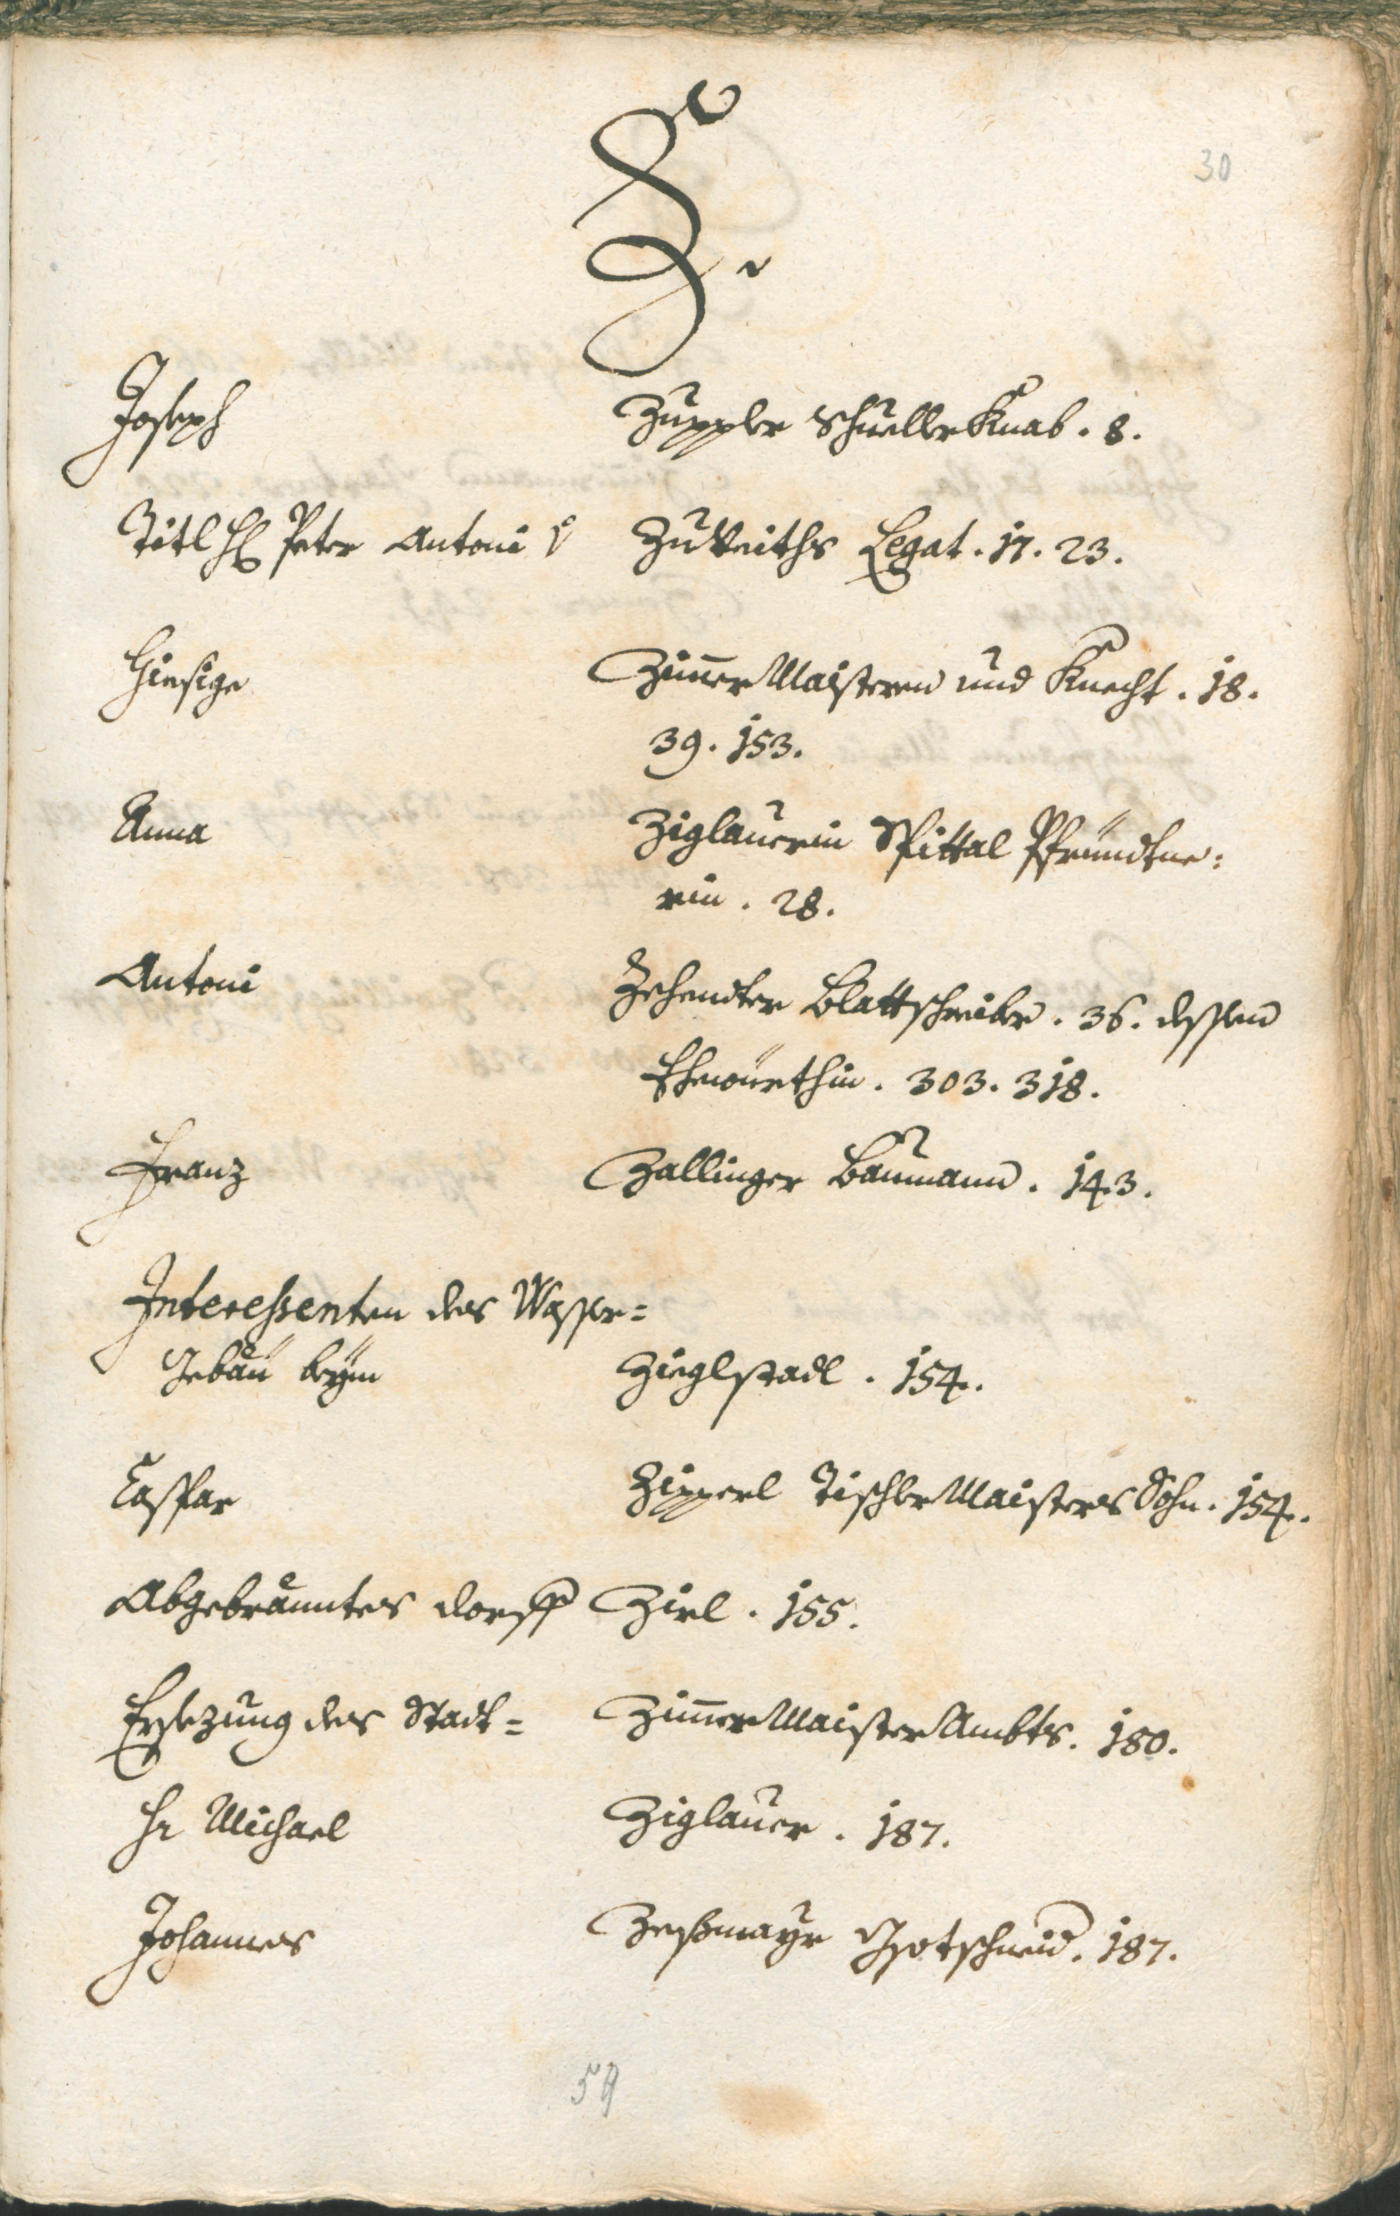 30
Z.
Joseph Zuppler Schueller Knab. 8.
Titl H: Peter Antoni v Zu Veiths Legat. 17. 23.
Hiesige Zimer Maistern und Knecht. 18.
39. 153.
Anna Ziglauerin Spittal Pfründtne:
rin. 28.
Antoni Zehendter Blattschreiber. 36. dessen
Ehewürthin. 303. 318.
Franz Zallinger Baumann. 143.
Interessenten des Wasser=
Gebäu beÿm Zieglstadl. 154.
Caspar Zipperl Tischler Maisters Sohn. 154.
Abgebranntes dorff Zirl. 155.
Ersezung des Stadt= Zimer Maister Ambts. 180.
Hr Michael Ziglauer. 187.
Johannes Zessmayr. 187.
59